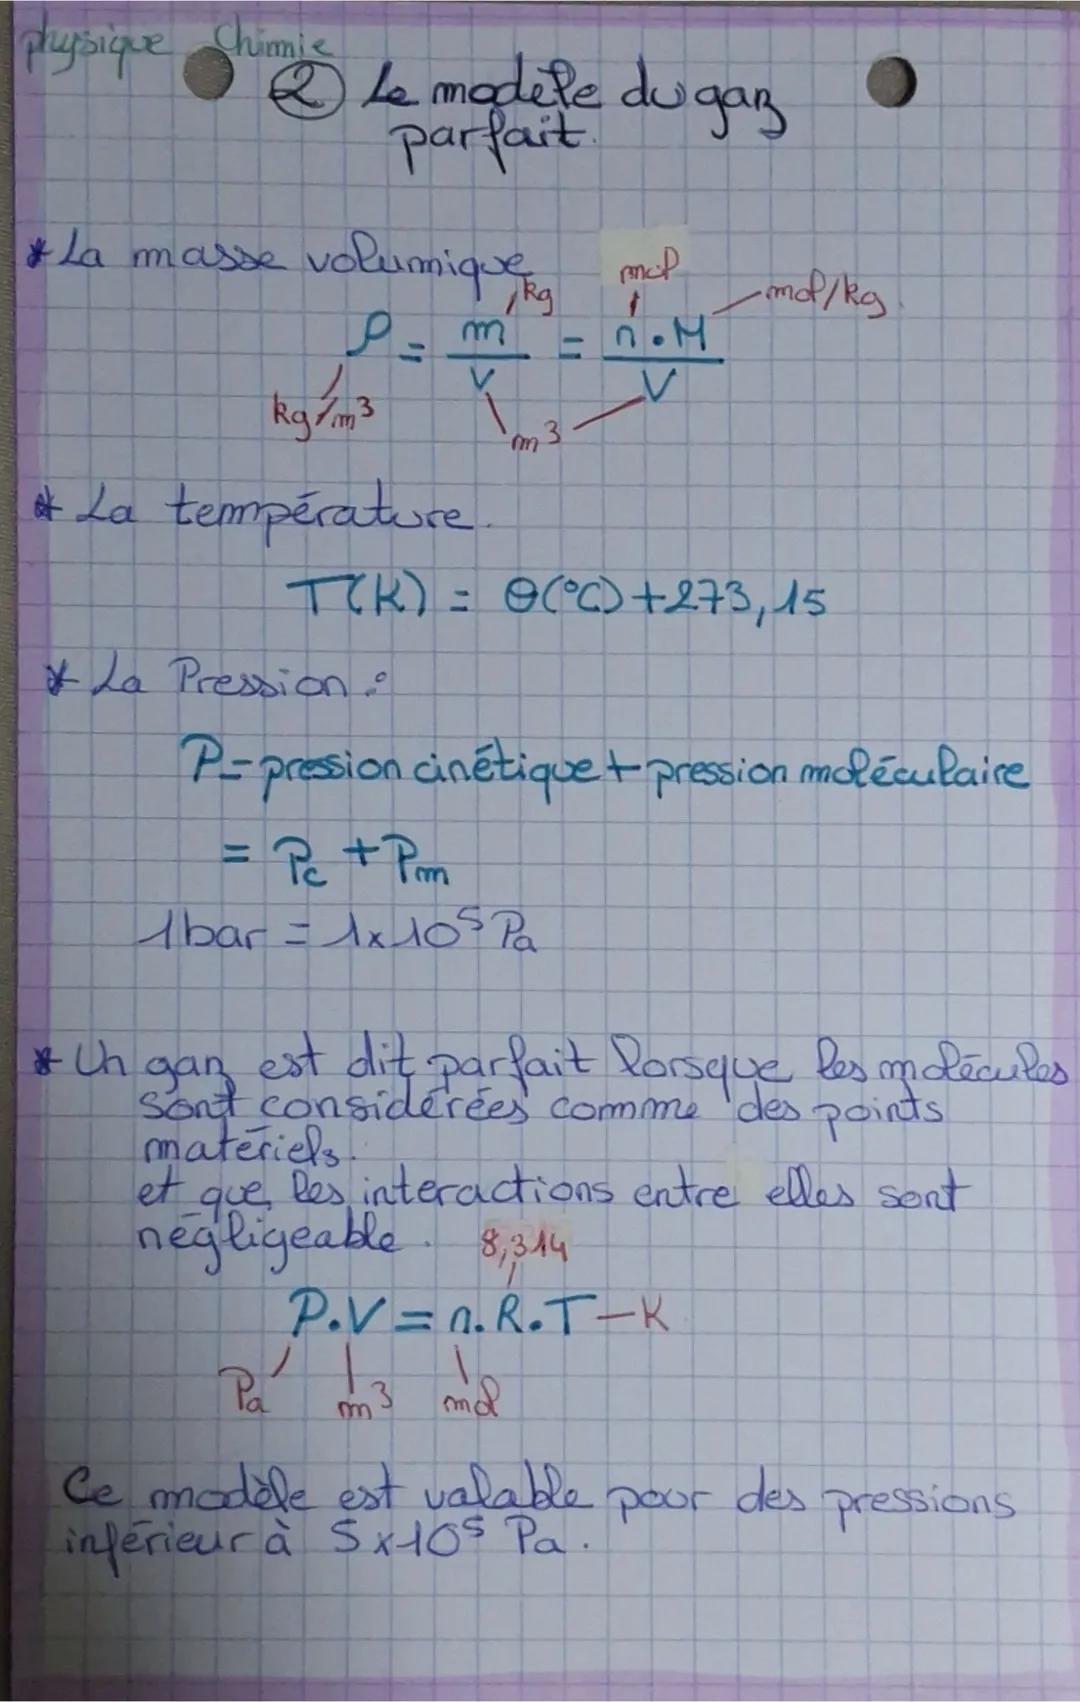 physique Chimie
② Le modèle du gaz
parfait.
* La masse volumique
kg mol mol/kg
ρ = m/V = n.M/V
kg/m³ m³
* La température.
T(K) = θ(°C) + 273,15
* La Pression :
P = pression cinétique + pression moléculaire
= Pc + Pm
1 bar = 1x10⁵ Pa
* Un gaz est dit parfait lorsque les molécules
sont considérées comme des points
matériels.
et que les interactions entre elles sont
négligeable.
8,314
P.V = n.R.T — K
Pa m³ mol
Ce modèle est valable pour des pressions
inférieur à 5x10⁵ Pa.